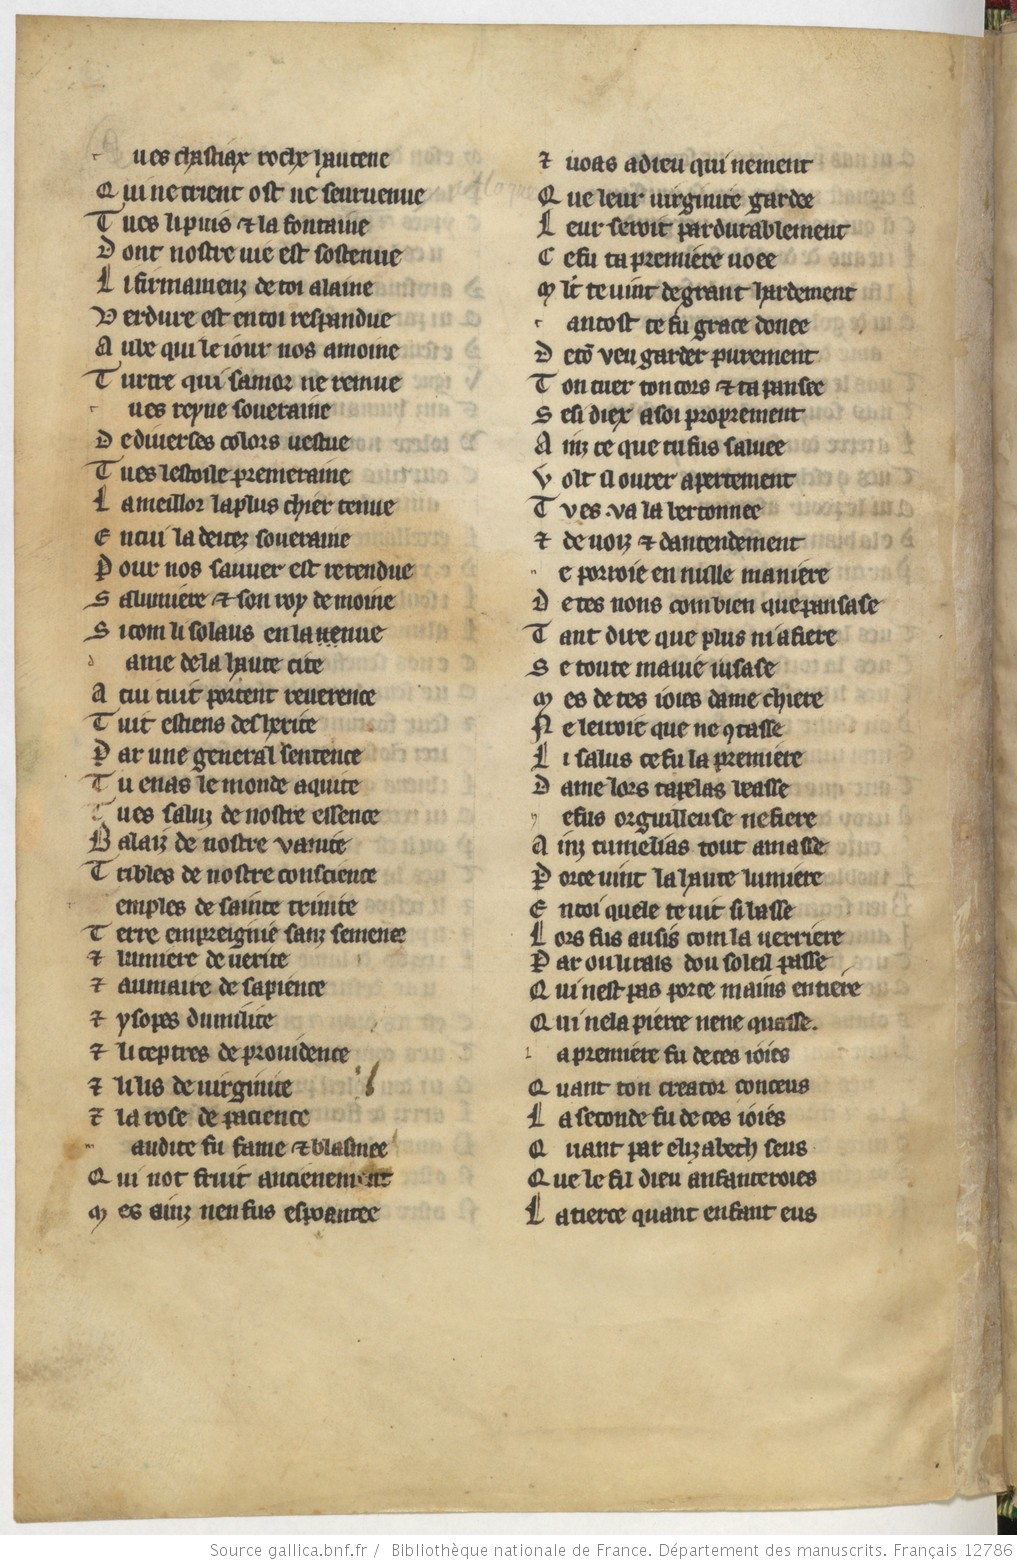 ues chastiax roche hautene
Q ui ne crient ost ne seuruenue
T ues li puis ⁊ la fontaine
D ont nostre uie est sostenue
L i firmamenz de toi alaine
V erdure est en toi respandue
A ube qui le iour nos amoine
T urtre qui samor ne remue
ues reyne soueraine
D e diuerses colors uestue
T u es lestoile premeraine
L a meillor la plus chier tenue
E n cui la deitez soueraine
P our nos sauuer est retendue
S a lumiere ⁊ son roy demoine
S i com li solaus en la nenue
d ame de la haute cite
A cui tuit portent reuerence
T uit estiens desherite
P ar une general sentence
T u enas le monde aquite
T u es saluz de nostre essence
B alaiz de nostre vanite
T cibles de nostre conscience
emples de sainte trinite
T erre empreignie sanz semence
⁊ lumiere de uerite
⁊ aumaire de sapience
⁊ ysopes dumilite
⁊ li ceptres de prouidence
⁊ li lis de uirginite
⁊ la rose de pacience
audite fu fame ⁊ blasmee
Q ui not fruit ancienement
M es ainz nen fus espoantee
⁊ uoas a dieu qui nement
Q ue leur uirginite gardee
L eur seroit pardurablement
C e fu ta premiere uoee
M lt te uint de grant hardement
antost te fu grace donee
D e tō veu garder purement
T on cuer ton cors ⁊ ta pansee
S esi diex a soi proprement
A inz ce que tu fus saluee
V olt il ourer apertement
T v es .va la lertonnee
⁊ de uoiz ⁊ dantendement
e porroie en nulle maniere
D e tes nons combien que pansasse
T ant dire que plus ni afiere
S e toute ma uie iusase
M es de tes ioies dame chiere
N e leiroie que ne ꝯtasse
L i salus ce fu la premiere
D ame lors tapelas basse
e fus orguilleuse ne fiere
A inz tumelias tout amasse
P orce uint la haute lumiere
E n toi quele te uit si basse
L ors fus ausis com la uerriere
P ar ou li rais dou soleil passe
Q ui nest pas porce mains entiere
Q ui ne la pierce ne ne quasse.
l a premiere fu de tes ioies
Q uant ton creator conceus
L a seconde fu de tes ioies
Q uant par elizabeth seus
Q ue le fil dieu anfanteroies
L a tierce quant enfant eus
Source gallica.bnf.fr / Bibliothèque nationale de France. Département des manuscrits. Français 12786